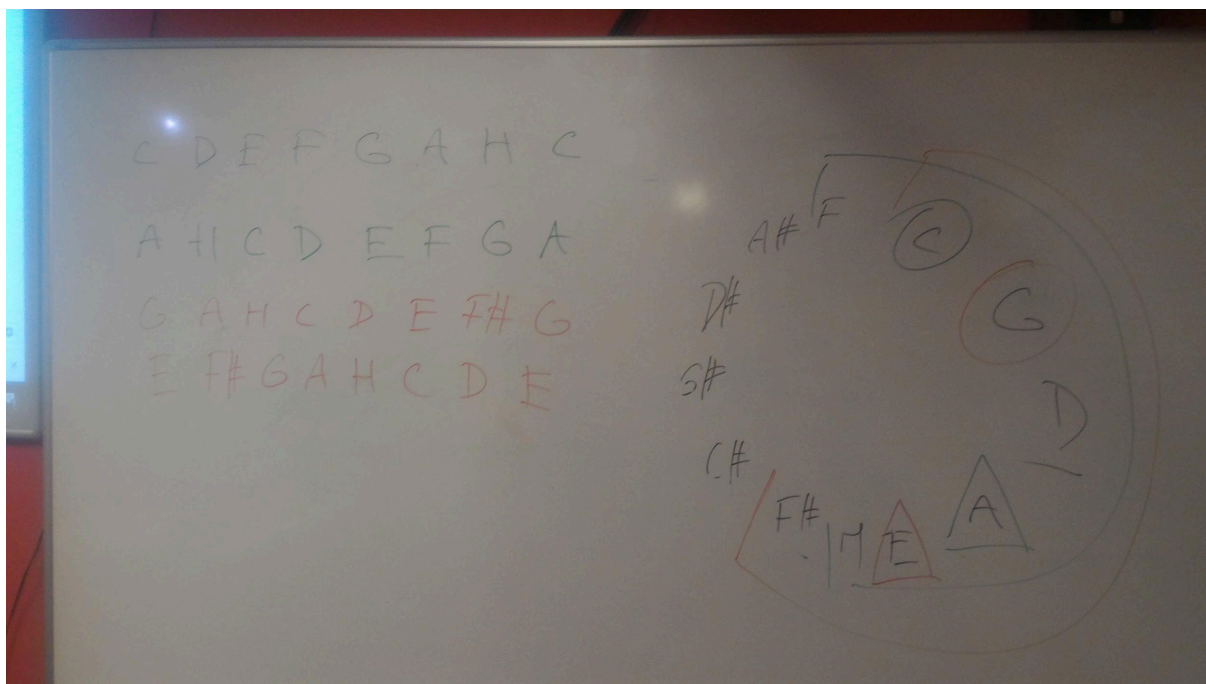 C D E F G A H C
A H C D E F G A
G A H C D E F# G
E F# G A H C D E
A# F C
D# G
G# D
C# A
F# H E